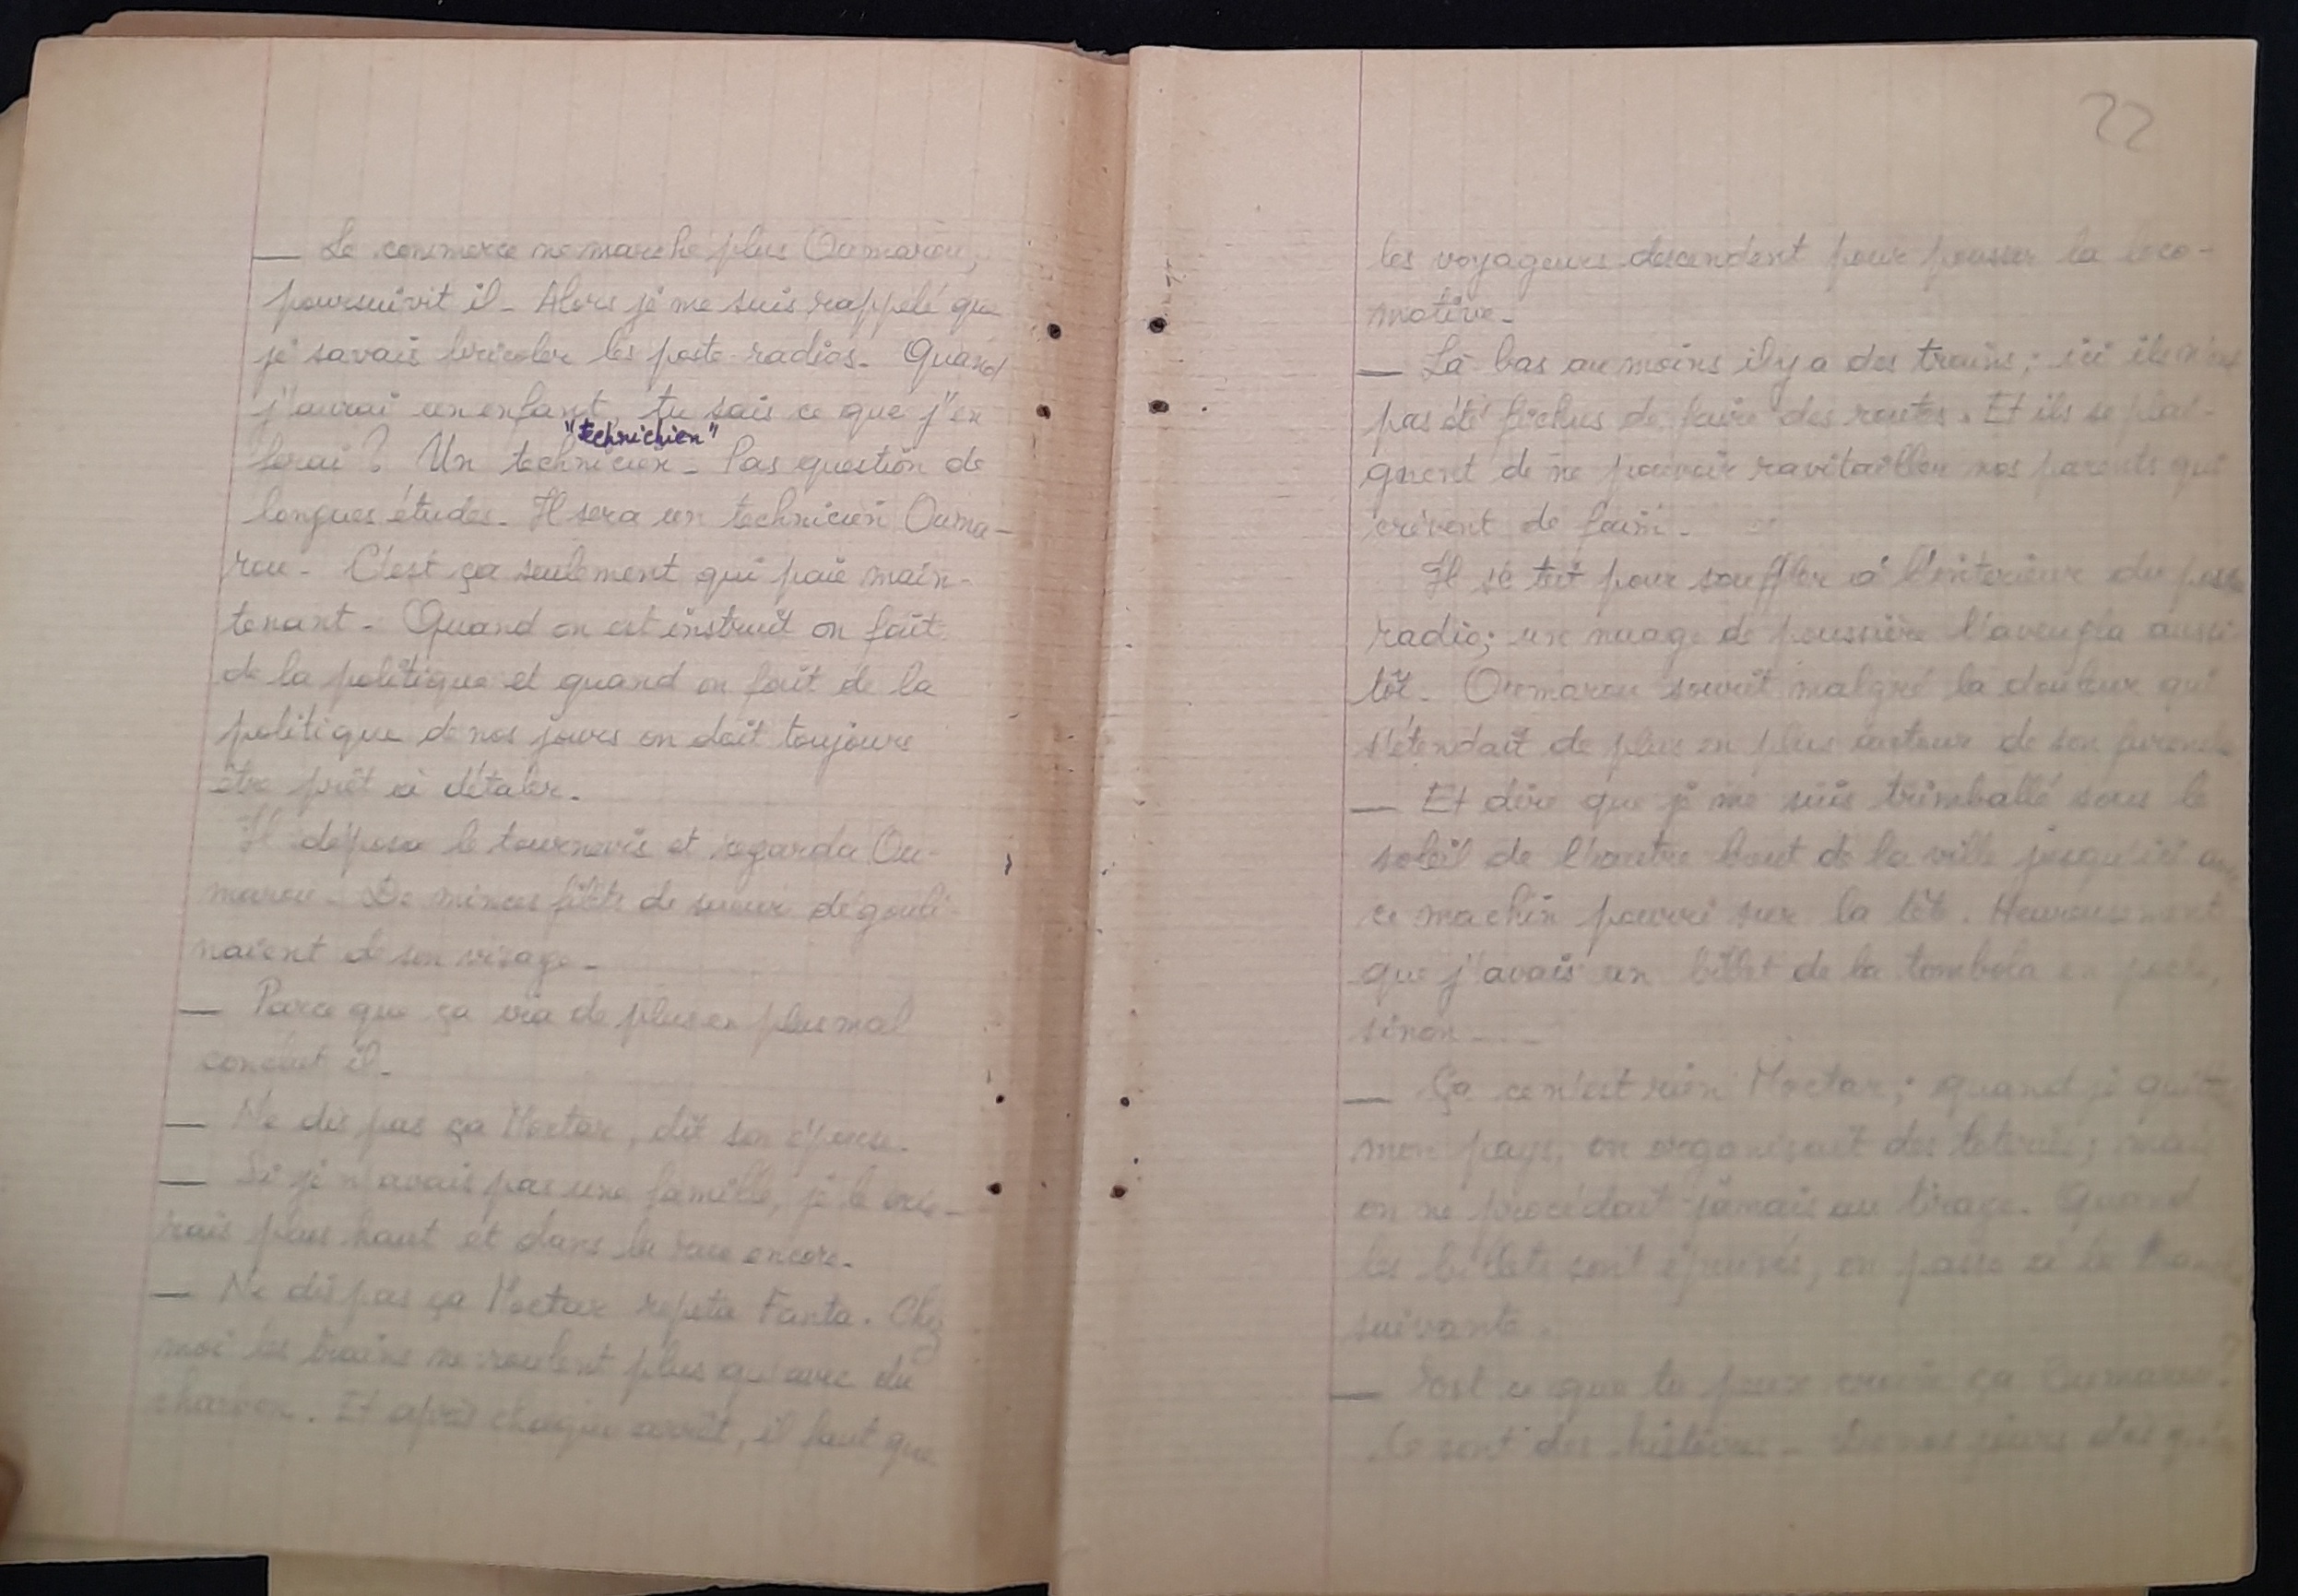 — Le commerce ne marche plus Oumarou,
poursuivit il - Alors je me suis rappelé que
je savais bricoler les poste-radios. Quand
j'aurai un enfant, tu sais ce que j'en
"technichien"
ferai ? Un technicien - Pas question de
longues études. Il sera un technicien Ouma-
rou - C'est ça seulement qui paie main-
tenant - Quand on est instruit on fait
de la politique et quand on fait de la
politique de nos jours on doit toujours
être prêt à détaler.
Il déposa le tournevis et regarda Ou-
marou - De minces filets de sueur dégouli-
naient de son visage -
— Parce que ça ira de plus en plus mal
conclut il -
— Ne dis pas ça Moctar, dit son épouse.
— Si je n'avais pas une famille, je le crie-
rais plus haut et dans la rue encore.
— Ne dis pas ça Moctar repeta Fanta. Chez
moi les trains ne roulent plus qu'avec du
charbon. Et après chaque arrêt, il faut que
22
les voyageurs descendent pour pousser la loco-
motive -
— Là-bas au moins il y a des trains ; ici ils n'ont
pas été fichus de faire des routes. Et ils se plai-
gnent de ne pouvoir ravitailler nos parents qui
crèvent de faim -
Il se tut pour souffler à l'interieur du poste
radio ; une nuage de poussière l'aveugla aussi-
tôt - Oumarou sourit malgré la douleur qui
s'étendait de plus en plus autour de son furoncle
— Et dire que je me suis trimballé sous le
soleil de l'autre bout de la ville jusqu'ici avec
ce machin pourri sur la tête. Heureusement
que j'avais un billet de la tombola en poche,
sinon ----
— Ça ce n'est rien Moctar ; quand je quittai
mon pays, on organisait des loteries ; mais
on ne procédait jamais au tirage. Quand
les billets sont épuisés, on passe à la tranche
suivante.
— Est ce que tu peux croire ça Oumarou ?
Ce sont des histoires - De nos jours dès qu'